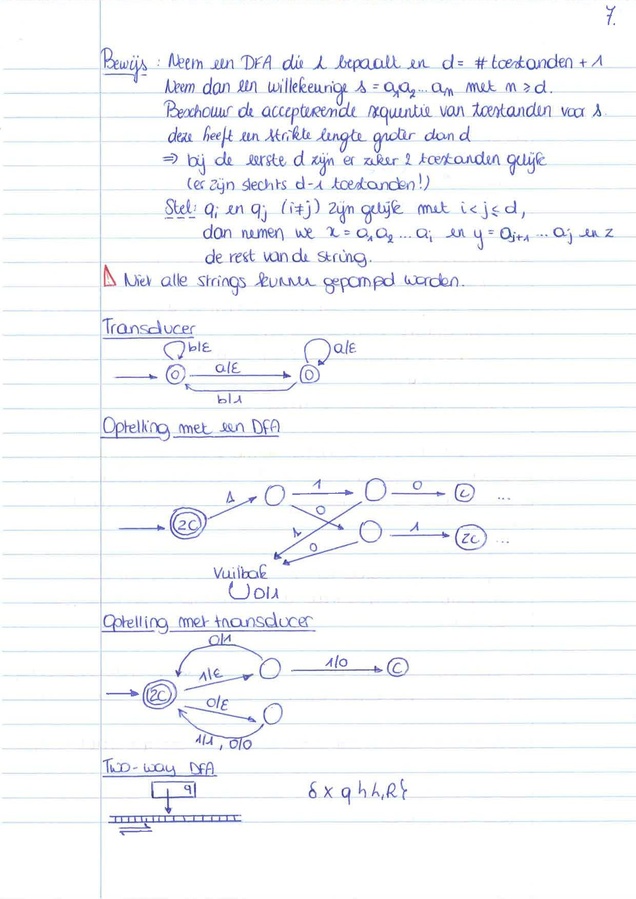 7.
Bewijs : Neem een DFA die L bepaalt en d = # toestanden + 1
Neem dan een willekeurige s = a₁a₂...aₙ met n ≥ d.
Beschouw de accepterende sequentie van toestanden voor s
deze heeft een strikte lengte groter dan d
⇒ bij de eerste d zijn er zeker 2 toestanden gelijk
(er zijn slechts d-1 toestanden!)
Stel: qᵢ en qⱼ (i≠j) zijn gelijk met i < j ≤ d,
dan nemen we x = a₁a₂...aᵢ en y = aⱼ₊₁...aⱼ en z
de rest van de string.
Niet alle strings kunnen gepompd worden.
Transducer
b/ε a/ε
a/ε
b/1
Optelling met een DFA
1 1 0 C ...
ZC 0
1 1 ZC ...
0
Vuilbak
0/1
Optelling met transducer
0/1
1/ε 1/0 C
ZC
0/ε
1/1, 0/0
Two-way DFA
q
δ x q {L,R}